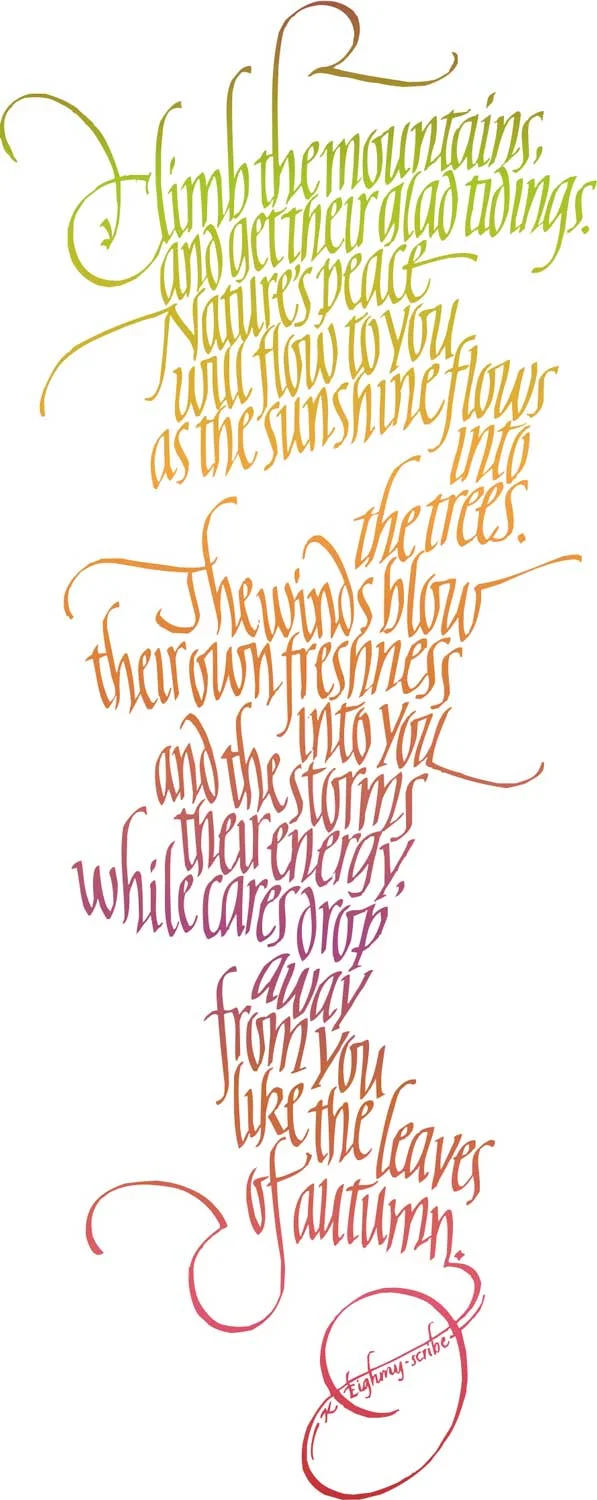 Climb the mountains,
and get their glad tidings.
Nature's peace
will flow to you
as the sunshine flows
into
the trees.
The winds blow
their own freshness
into you
and the storms
their energy,
while cares drop
away
from you
like the leaves
of autumn.
K Eighmy-scribe-